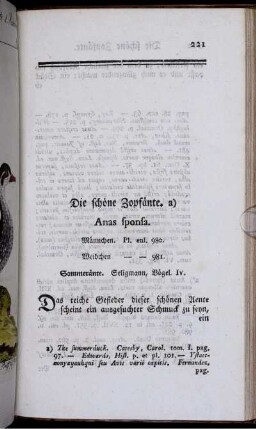 221
Die schöne Zopfänte. a)
Anas sponsa.
Männchen. Pl. enl. 980.
Weibchen — — 981.
Sommeränte. Seligmann, Vögel. IV.
Das reiche Gefieder dieser schönen Aente
scheint ein ausgesuchter Schmuck zu seyn,
ein
a) The summerduck. Catesby, Carol. tom. I. pag.
97. — Edwards, Hist. p. et pl. 101. — Yztac-
seu Avis varii capitis, Fernandez,
pag.